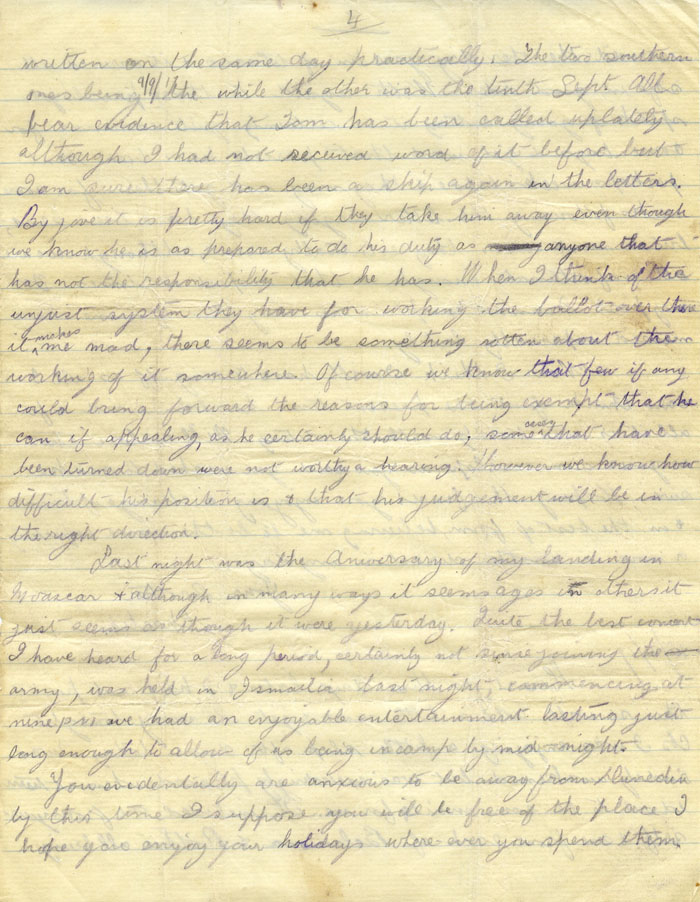 4
written on the same day practically. The two southern
ones being 9/9/17 the while the other was the tenth Sept. All
bear evidence that Tom has been called uplately
although I had not received word of it before but
I am sure there has been a ship again in the letters.
By jove it is pretty hard if they take him away even though
we know he is as prepared to do his duty as anyone that
has not the responsibility that he has. When I think of the
unjust system they have for working the ballot over there
it makes me mad, there seems to be something rotten about the
working of it somewhere. Of course we know that few if any
could bring forward the reasons for being exempt that he
can if appealing, as he certainly should do, some cases that have
been turned down were not worthy a hearing. However we know how
difficult his position is & that his judgement will be in
the right direction.
Last night was the aniversary of my landing in
Moascar & although in many ways it seems ages in others it
just seems as though it were yesterday. Quite the best concert
I have heard for a long period, certainly not since joining the
army, was held in Ismailia last night, commencing at
nine pm we had an enjoyable entertainment lasting just
long enough to allow of us being in camp by mid-night.
You evedentally are anxious to be away from Dunedin
by this time I suppose you will be free of the place I
hope you enjoy your holidays where ever you spend them.